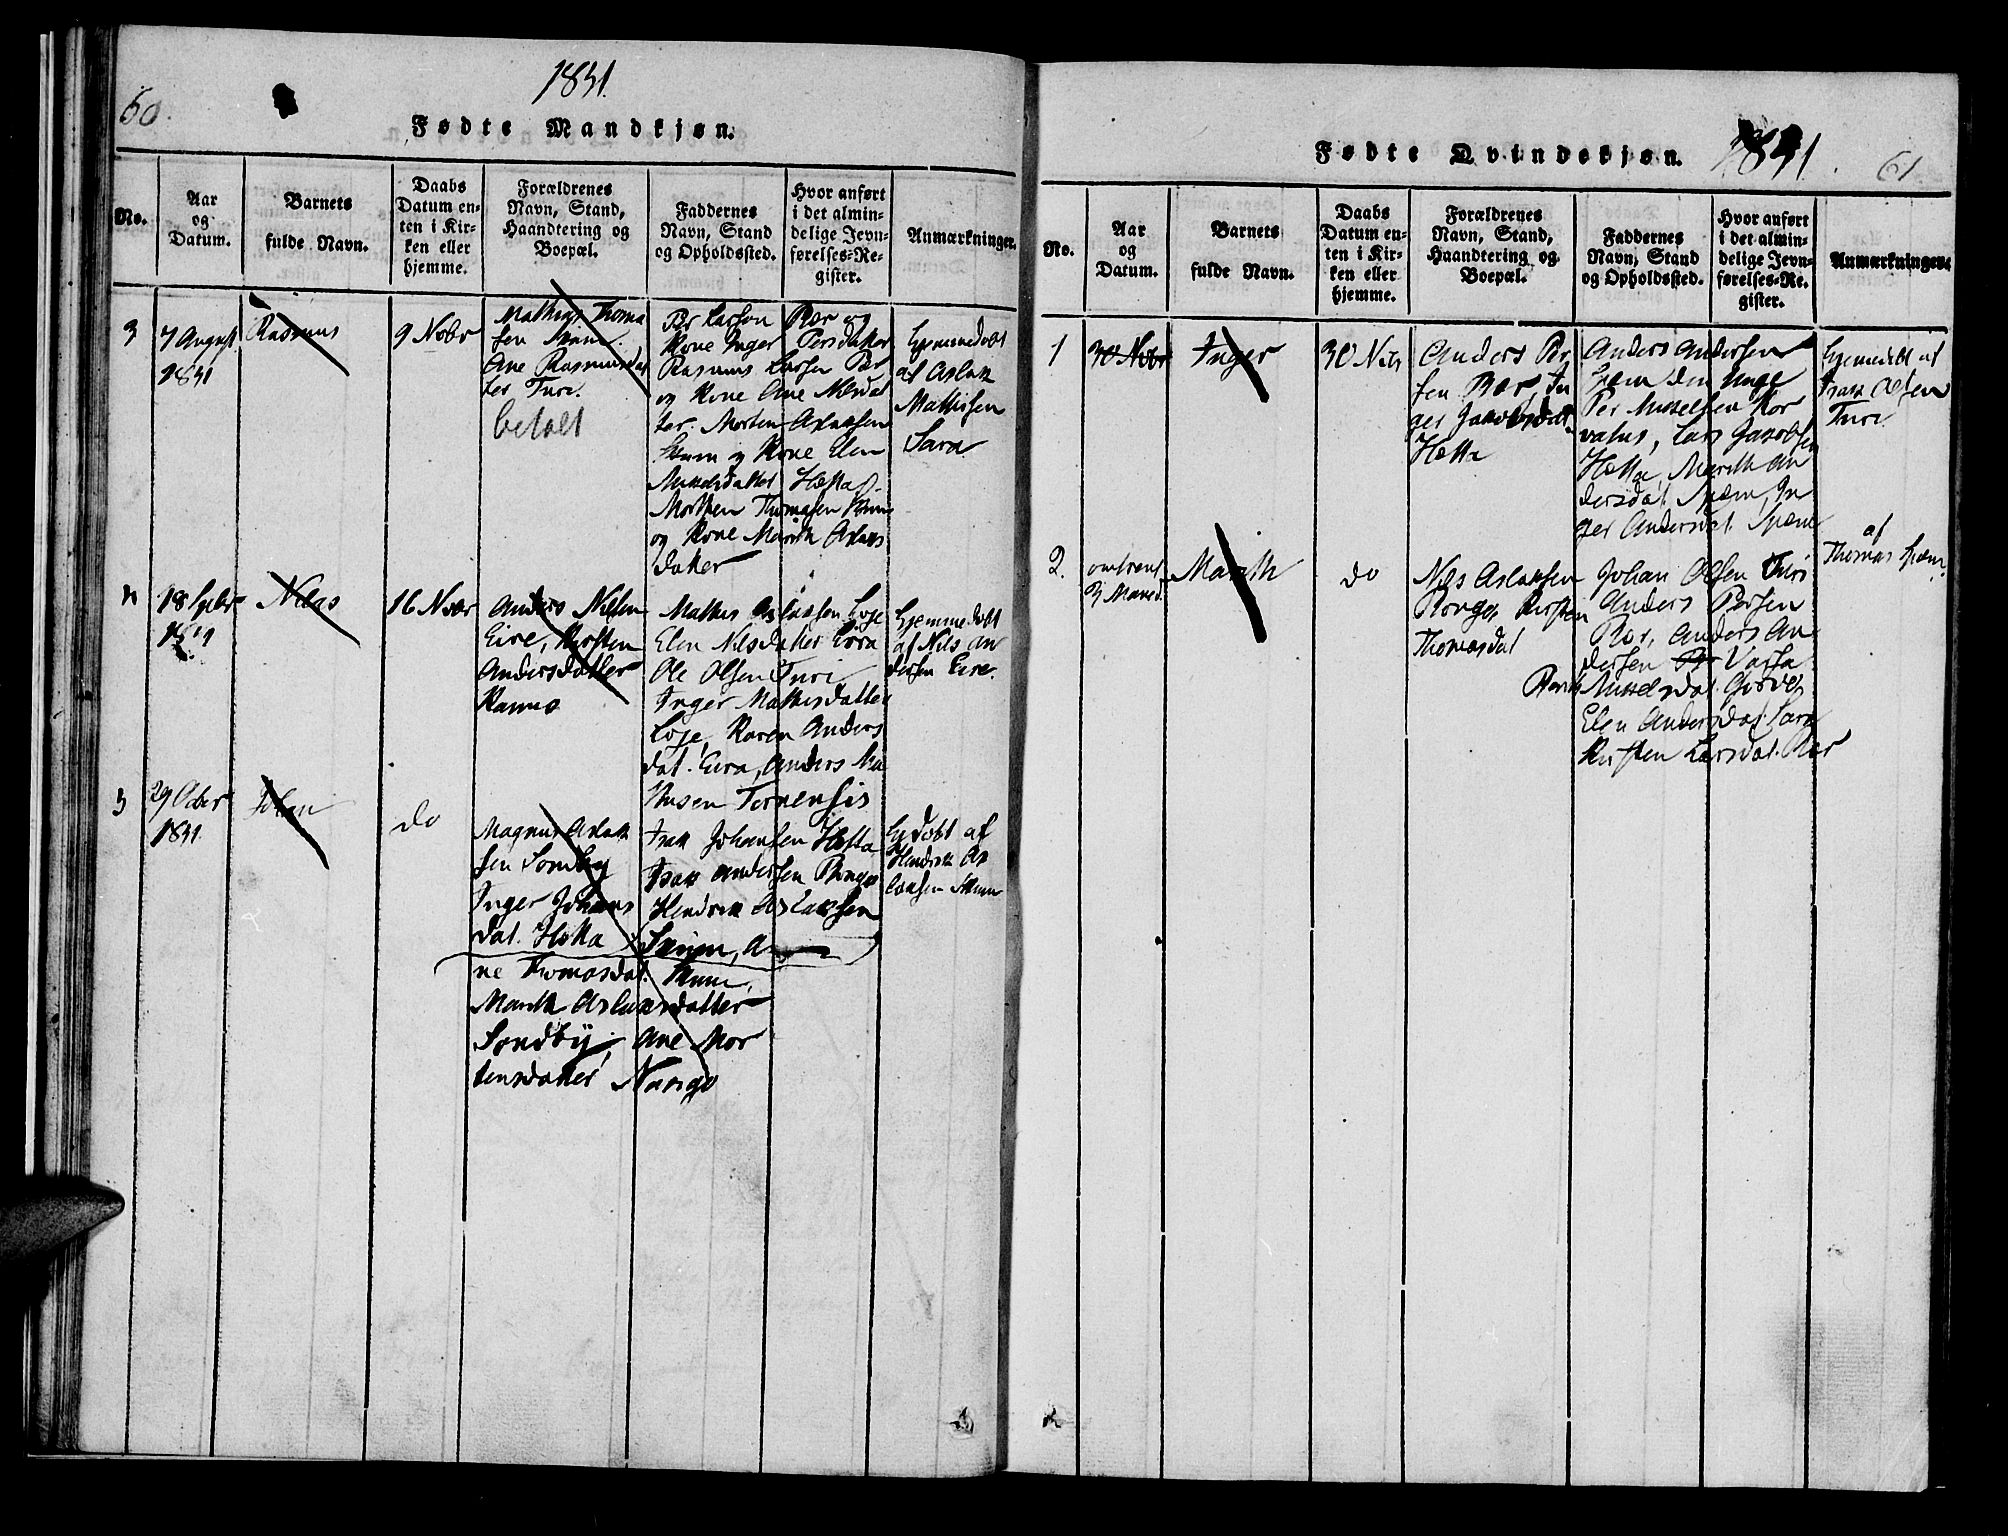 60.
1831.
Fødte Mandkjøn.
No.
Aar
og
Datum.
Barnets
fulde Navn.
Daabs
Datum en-
ten i Kir-
ken eller
hjemme.
Forældrenes
Navn, Stand,
Haandtering og
Boepæl.
Faddernes
Navn, Stand
og Opholdssted.
Hvor anført
i det almin-
delige Jevn-
førelses-Re-
gister.
Anmærkninger.
3
7 August
1831
Rasmus
9 Nobr
Mathis Thoma
sen
Ane Rasmusdat
ter Turi.
betalt
Per Larsen Bær og
Kone Inger Persdatter
Rasmus Larsen Bær
og Kone Ane Nilsdat
ter. Morten Aslaksen
og Kone Elen
Mikkelsdatter Hætta
Morthen Thomasen
og Kone Marith Aslaks
datter
Hjemmedøbt
af Aslak
Mathisen
Sara
18
Nils
16 Nobr
Anders Nilsen
Eire, Kirsten
Andersdatter
Mathis Aslaksen
Elen Nilsdatter Eira
Ole Olsen Turi
Inger Mathisdatter
Karen Anders
dat. Eira, Anders Ma
thisen Tornensis
Hjemmedøbt
af Nils An
dersen Eire.
29 Octbr
1831.
Johan
do
Magnus Aslak
sen Somby
Inger Johans
dat. Hætta
Isak Johansen Hætta
Isak Andersen Bongo
Hendrik Aslaksen
Skum, A
ne Thomasdat. Skum,
Marith Aslaksdatter
Sondby, Ane Mor
tensdatter Nango
Hj døbt af
Hendrik As
laksen Skum
Fødte Qvindekjøn.
1831.
61
No.
Aar
og
Datum.
Barnets
fulde Navn.
Daabs
Datum en-
ten i Kir-
ken eller
hjemme.
Forældrenes
Navn, Stand,
Haandtering og
Boepæl.
Faddernes
Navn, Stand
og Opholdssted.
Hvor anført
i det almin-
delige Jevn-
førelses-Re-
gister.
Anmærkninger.
1
30 Nobr
Inger
30 Nobr
Anders Per
sen Bær, In
ger Jakobsdat.
Hætta
Anders Andersen
Spæin den Unge
Per Mikkelsen Kor
valus, Lars Jakobsen
Hætta, Marith An
dersdat. Spæin, In
ger Andersdat. Spæin
Hjemedøbt af
Isak Olsen
Turi
2.
omtrent
3 Maned
Marith
do
Nils Aslaksen
Bongo, Kirsten
Thomasdat
Johan Olsen Turi
Anders Persen
Bær, Anders An
dersen Vassa
Berith Mikkelsdat. Gosdo
Elen Andersdat. Sara
Kirsten Larsdat. Bær
af
Thomas Spæin